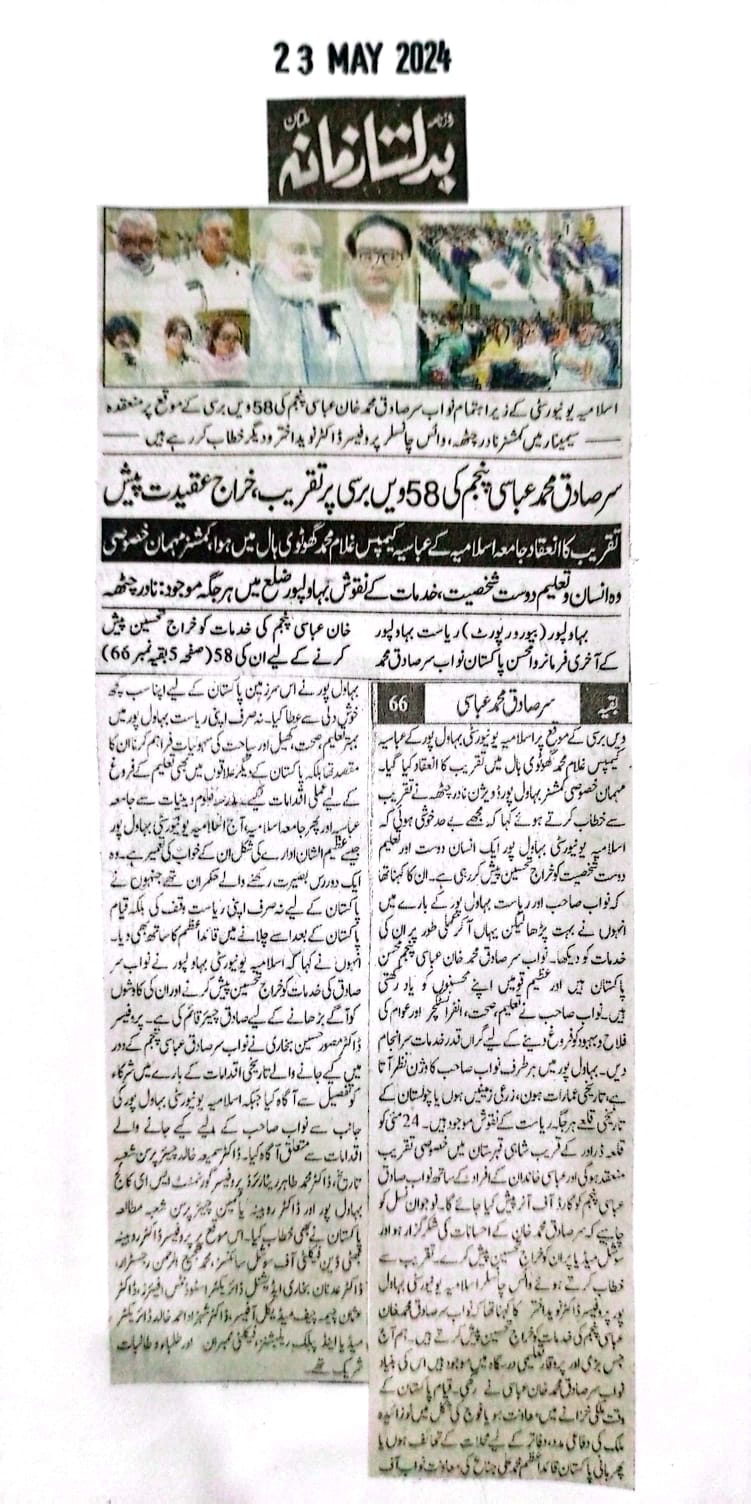 23 MAY 2024
روزنامہ بدلتا زمانہ ملتان
اسلامیہ یونیورسٹی کے زیر اہتمام نواب سر صادق محمد خان عباسی پنجم کی 58 ویں برسی کے موقع پر منعقدہ
سیمینار میں کمشنر نادر چٹھہ، وائس چانسلر پروفیسر ڈاکٹر نوید اختر و دیگر خطاب کر رہے ہیں
سر صادق محمد عباسی پنجم کی 58 ویں برسی پر تقریب، خراج عقیدت پیش
تقریب کا انعقاد جامعہ اسلامیہ کے عباسیہ کیمپس غلام محمد گھوٹوی ہال میں ہوا، کمشنر مہمان خصوصی
وہ انسان و تعلیم دوست شخصیت، خدمات کے نقوش بہاولپور ضلع میں ہر جگہ موجود: نادر چٹھہ
بہاولپور (بیورو رپورٹ) ریاست بہاولپور
کے آخری فرمانروا محسن پاکستان نواب سر صادق محمد
خان عباسی پنجم کی خدمات کو خراج تحسین پیش
کرنے کے لیے ان کی 58 (صفحہ 5 بقیہ نمبر 66)
بقیہ سر صادق محمد عباسی 66
ویں برسی کے موقع پر اسلامیہ یونیورسٹی بہاول پور کے عباسیہ
کیمپس غلام محمد گھوٹوی ہال میں تقریب کا انعقاد کیا گیا۔
مہمان خصوصی کمشنر بہاول پور ڈویژن نادر چٹھہ نے تقریب
سے خطاب کرتے ہوئے کہا کہ مجھے بے حد خوشی ہوئی کہ
اسلامیہ یونیورسٹی بہاول پور ایک انسان دوست اور تعلیم
دوست شخصیت کو خراج تحسین پیش کر رہی ہے۔ ان کا کہنا تھا
کہ نواب صاحب اور ریاست بہاول پور کے بارے میں
انہوں نے بہت پڑھا لیکن یہاں آ کر عملی طور پر ان کی
خدمات کو دیکھا۔ نواب سر صادق محمد خان عباسی پنجم محسن
پاکستان ہیں اور عظیم قومیں اپنے محسنوں کو یاد رکھتی
ہیں۔ نواب صاحب نے تعلیم، صحت، انفراسٹکچر اور عوام کی
فلاح و بہبود کو فروغ دینے کے لیے گراں قدر خدمات سرانجام
دیں۔ بہاول پور میں ہر طرف نواب صاحب کا وژن نظر آتا
ہے، تاریخی عمارات ہوں، زرعی زمینیں ہوں یا چولستان کے
تاریخی قلعے ہر جگہ ریاست کے نقوش موجود ہیں۔ 24 مئی کو
قلعہ ڈراور کے قریب شاہی قبرستان میں خصوصی تقریب
منعقد ہو گی اور عباسی خاندان کے افراد کے ساتھ نواب صادق
عباسی پنجم کو گارڈ آف آنر پیش کیا جائے گا۔ نوجوان نسل کو
چاہیے کہ سر صادق محمد خان کے احسانات کی شکر گزار ہو اور
سوشل میڈیا پر ان کو خراج تحسین پیش کرے۔ تقریب سے
خطاب کرتے ہوئے وائس چانسلر اسلامیہ یونیورسٹی بہاول
پور پروفیسر ڈاکٹر نوید اختر کا کہنا تھا کہ نواب سر صادق محمد خان
عباسی پنجم کی خدمات کو خراج تحسین پیش کرتے ہیں۔ ہم آج
جس بڑی اور پروقار تعلیمی درسگاہ میں موجود ہیں اس کی بنیاد
نواب سر صادق محمد خان عباسی نے رکھی۔ قیام پاکستان کے
وقت ملکی خزانے میں معاونت ہو یا فوج کی شکل میں نوزائیدہ
ملک کی دفاعی مدد، دفاتر کے لیے محلات کے تحائف ہوں یا
پھر بانی پاکستان قائد اعظم محمد علی جناح کی معاونت نواب آف
بہاول پور نے اس سرزمین پاکستان کے لیے اپنا سب کچھ
خوش دلی سے عطا کیا۔ نہ صرف اپنی ریاست بہاول پور میں
بہتر تعلیم، صحت، کھیل اور سیاحت کی سہولیات فراہم کرنا ان کا
مقصد تھا بلکہ پاکستان کے دیگر علاقوں میں بھی تعلیم کے فروغ
کے لیے عملی اقدامات کیے۔ مدرسہ علوم دینیات سے جامعہ
عباسیہ اور پھر جامعہ اسلامیہ، آج الاسلامیہ یونیورسٹی بہاول پور
جیسے عظیم الشان ادارے کی شکل ان کے خواب کی تعبیر ہے۔ وہ
ایک دور رس بصیرت رکھنے والے حکمران تھے جنہوں نے
پاکستان کے لیے نہ صرف اپنی ریاست وقف کی بلکہ قیام
پاکستان کے بعد اسے چلانے میں قائد اعظم کا ساتھ بھی دیا۔
انہوں نے کہا کہ اسلامیہ یونیورسٹی بہاولپور نے نواب سر
صادق کی خدمات کو خراج تحسین پیش کرنے اور ان کی کاوشوں
کو آگے بڑھانے کے لیے صادق چیئر قائم کی ہے۔ پروفیسر
ڈاکٹر منصور حسین بخاری نے نواب سر صادق عباسی پنجم کے دور
میں کیے جانے والے تاریخی اقدامات کے بارے میں شرکاء
کو تفصیل سے آگاہ کیا جبکہ اسلامیہ یونیورسٹی بہاول پور کی
جانب سے نواب صاحب کے لیے کیے جانے والے
اقدامات سے متعلق آگاہ کیا۔ ڈاکٹر سمیعہ خالد چیئر پرسن شعبہ
تاریخ، ڈاکٹر محمد طاہر ریٹائرڈ پروفیسر گورنمنٹ ایس ای کالج
بہاول پور اور ڈاکٹر روبینہ یاسمین چیئر پرسن شعبہ مطالعہ
پاکستان نے بھی خطاب کیا۔ اس موقع پر پروفیسر ڈاکٹر روبینہ
بھٹی ڈین فیکلٹی آف سوشل سائنسز، محمد شجیع الرحمن رجسٹرار،
ڈاکٹر عدنان بخاری ایڈیشنل ڈائریکٹر اسٹوڈنٹس افیئرز، ڈاکٹر
عثمان چیمہ چیف میڈیکل آفیسر، ڈاکٹر شہزاد احمد خالد ڈائریکٹر
میڈیا اینڈ پبلک ریلیشنز، فیکلٹی ممبران اور طلباء و طالبات
شریک تھے